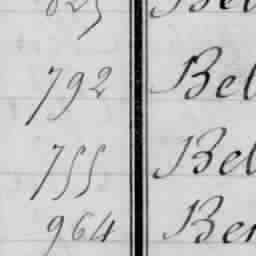 792 Bel
755 Bel
964 Ber